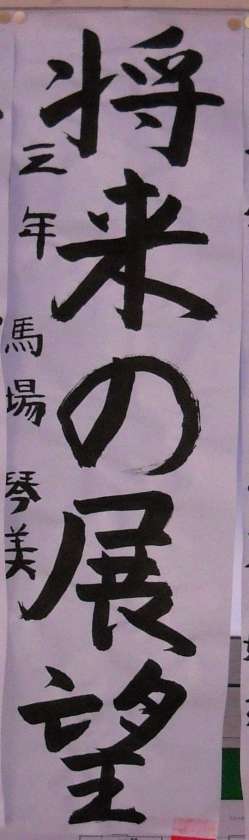 将来の展望
三年 馬場 琴美